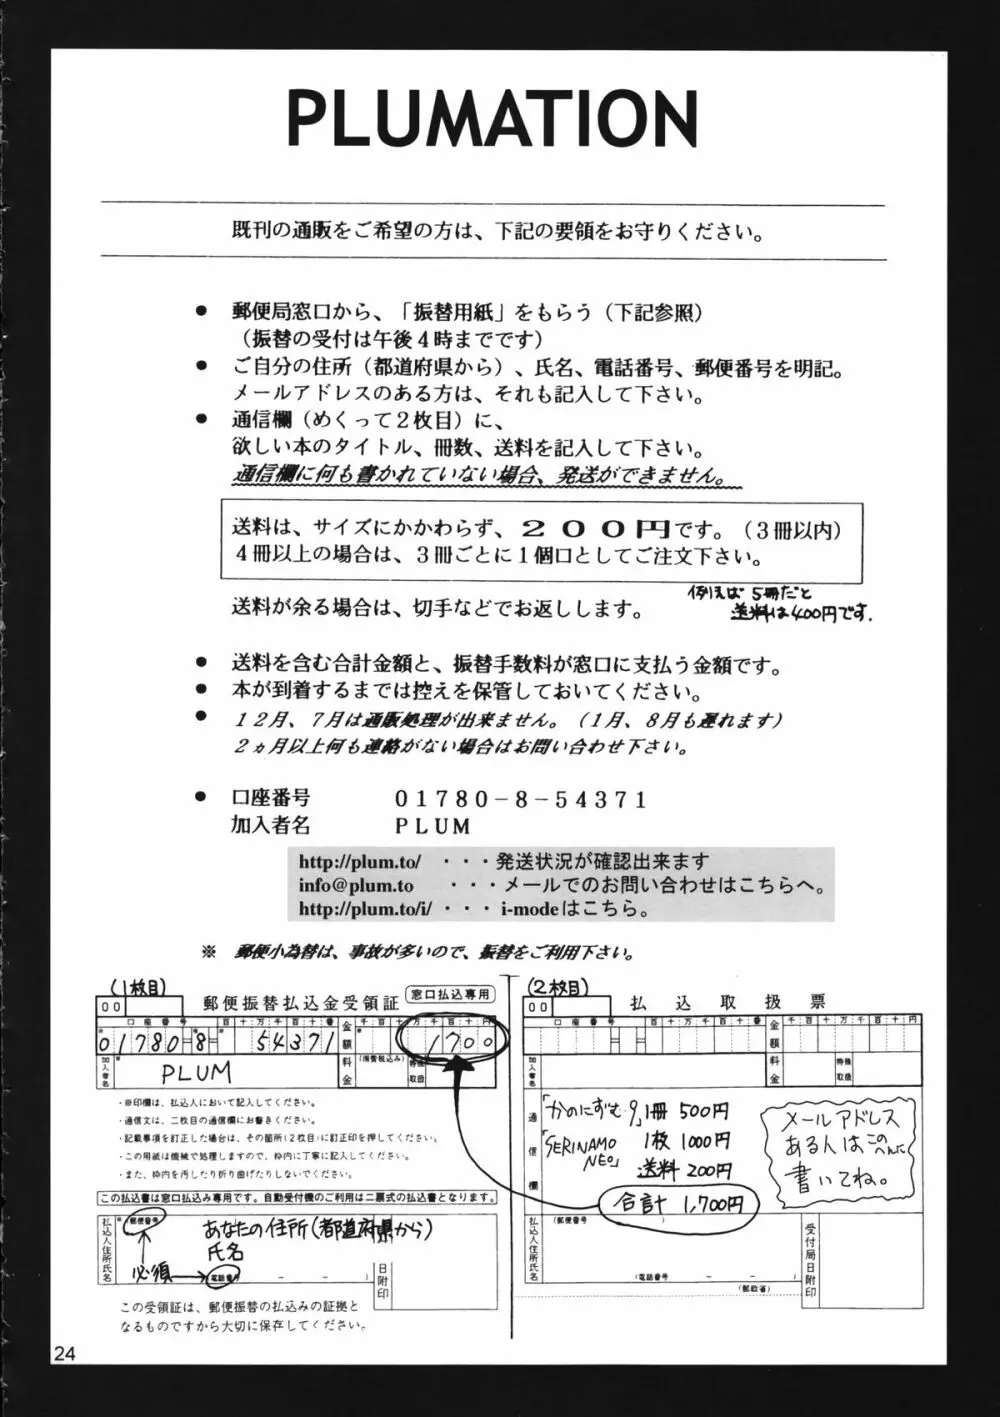 PLUMATION
既刊の通販をご希望の方は、下記の要領をお守りください。
● 郵便局窓口から、「振替用紙」をもらう（下記参照）
（振替の受付は午後４時までです）
● ご自分の住所（都道府県から）、氏名、電話番号、郵便番号を明記。
メールアドレスのある方は、それも記入して下さい。
● 通信欄（めくって２枚目）に、
欲しい本のタイトル、冊数、送料を記入して下さい。
通信欄に何も書かれていない場合、発送ができません。
送料は、サイズにかかわらず、２００円です。（３冊以内）
４冊以上の場合は、３冊ごとに１個口としてご注文下さい。
例えば 5冊だと
送料は400円です.
送料が余る場合は、切手などでお返しします。
● 送料を含む合計金額と、振替手数料が窓口に支払う金額です。
● 本が到着するまでは控えを保管しておいてください。
● １２月、７月は通販処理が出来ません。（１月、８月も遅れます）
２ヵ月以上何も連絡がない場合はお問い合わせ下さい。
● 口座番号 ０１７８０－８－５４３７１
加入者名 ＰＬＵＭ
http://plum.to/ ・・・発送状況が確認出来ます
info@plum.to ・・・メールでのお問い合わせはこちらへ。
http://plum.to/i/ ・・・ i-modeはこちら。
※ 郵便小為替は、事故が多いので、振替をご利用下さい。
(1枚目)
00 郵便振替払込金受領証 窓口払込専用
口座番号 百十万千百十番 金額 千百十万千百十円
01780-8- 54371 1700
加入者名 PLUM 料金 (消費税込み) 特殊取扱
・※印欄は、払込人において記入してください。
・通信文は、二枚目の通信欄にお書きください。
・記載事項を訂正した場合は、その箇所(2枚目)に訂正印を押してください。
・この用紙は機械で処理しますので、枠内に丁寧に記入してください。
・また、枠内を汚したり折り曲げたりしないでください。
この払込書は窓口払込み専用です。自動受付機のご利用は二票式の払込書となります。
払込人住所氏名 ※(郵便番号) あなたの住所(都道府県から)
氏名
必須 (電話番号 － － ) 日附印
この受領証は、郵便振替の払込みの証拠と
なるものですから大切に保存してください。
(2枚目)
00 払込取扱票
口座番号 百十万千百十番 金額 千百十万千百十円
加入者名 料金 特殊取扱
通信欄
「かのにずむ9」1冊 500円
「SERINAMO NEO」 1枚 1000円
送料 200円
合計 1,700円
メールアドレス
ある人はこのへんに
書いてね。
払込人住所氏名 (郵便番号 )
(電話番号 － － )
(郵政省)
受付局日附印
24